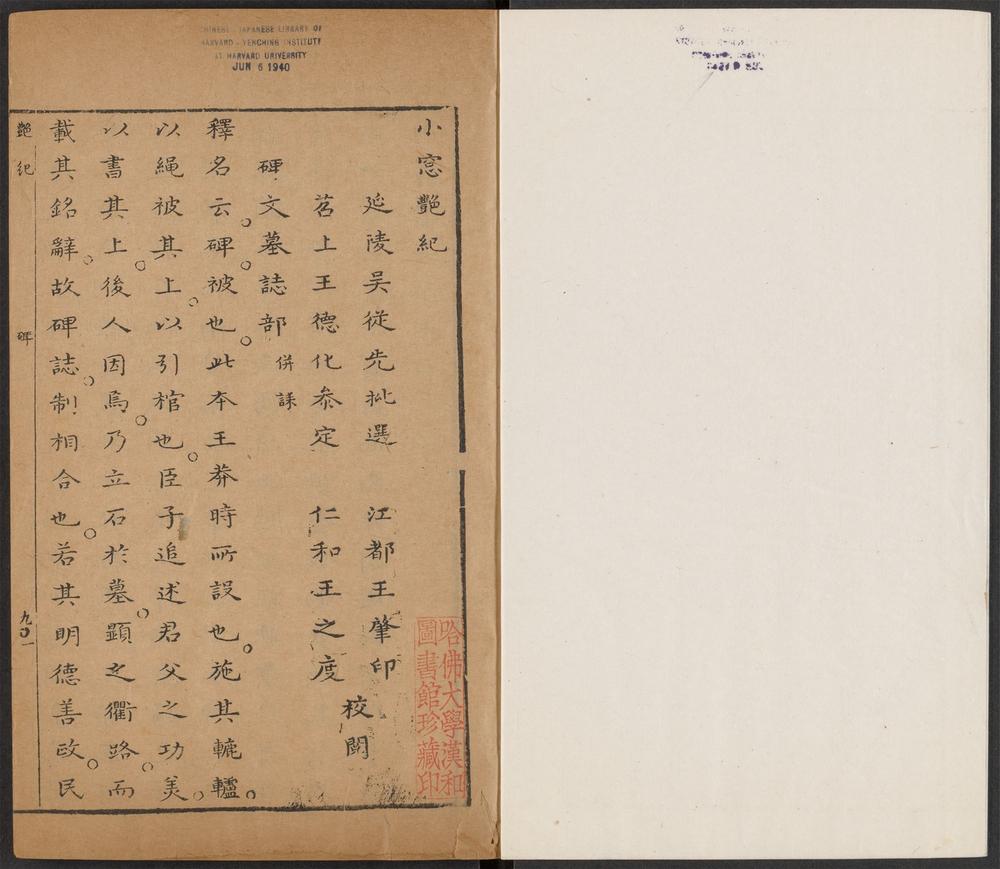 CHINESE - JAPANESE LIBRARY OF
HARVARD - YENCHING INSTITUTE
AT HARVARD UNIVERSITY
JUN 6 1940
小窓艷紀
延陵吳從先批選
江都王肇印
苕上王德化叅定
仁和王之度
校閱
碑文墓誌部
併誄
釋名云碑被也此本王莽時所設也施其轆轤
以繩被其上以引棺也臣子追述君父之功美
以書其上後人因焉乃立石於墓顯之衢路而
載其銘辭故碑誌制相合也若其明德善政民
艷紀
碑
九〇一
哈佛大學漢和
圖書館珍藏印